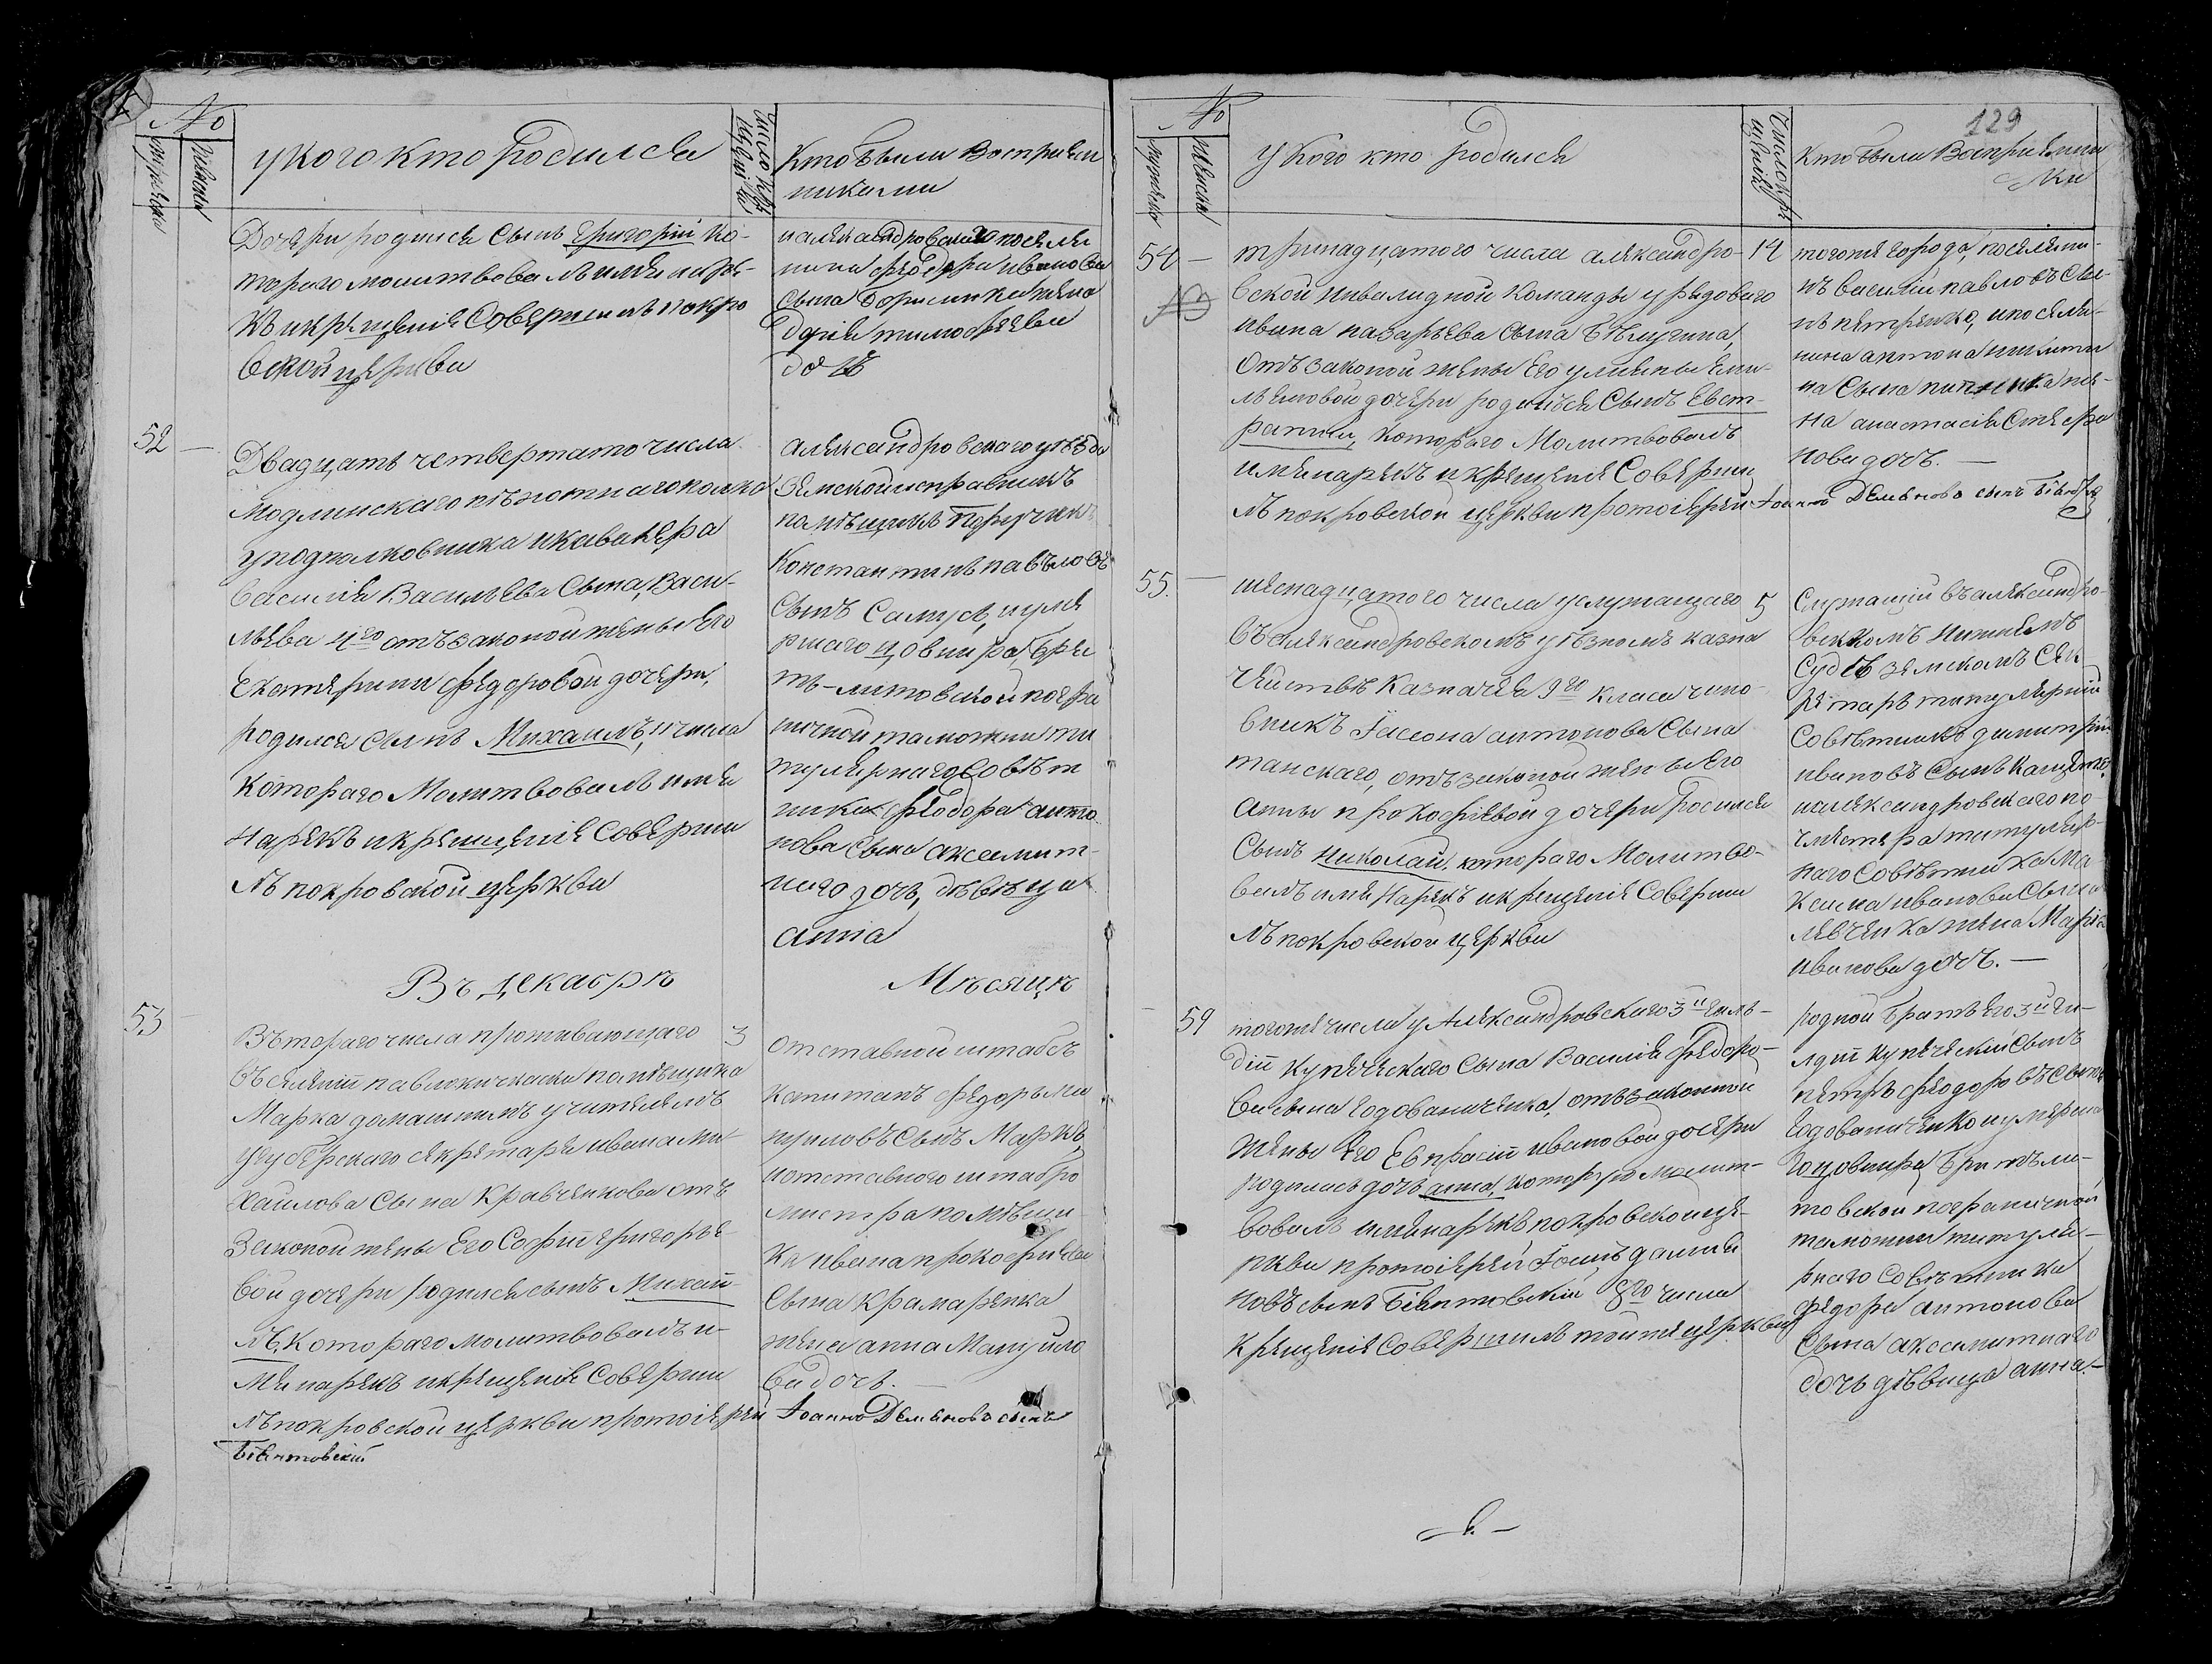 №
мужеска
женска
у кого кто родился
число кре
щенія
Кто были Воспріем
никами
Дочери родился сынъ Григорій ко-
тораго молитвовалъ имя наре-
къ и крещеніе совершилъ покро
вской церкви
и александровского поселя
нина феодора иванова
сына жена
тимофеева
дочь
52
Двадцать четвертаго числа
модлинскаго пѣхотнаго полка
у подполковника и кавалера
василія Васильева сына, Васи-
льева 4го отъ законой жены его
Екатерины федоровой дочери,
родился сынъ Михаилъ, 11 числа
котораго Молитвовалъ имя
нарекъ и крещеніе совърши
лъ покровской церкви
александровского уѣзда
земской исправникъ
помѣщикъ Поручикъ
Константинъ павъловъ
сынъ Самусь, и уме
ршаго цовнира бре
тъ-литовской погра
ничной таможни ти
тулярного Совѣт
ника феодора анто
нова сына аксамит-
наго дочь, дѣвица
анна
Въ декабрѣ
Мѣсяцѣ
53
Въторого числа проживающаго
въ селеніи павловки помѣщика
Марка домашнимъ учителемъ
у губерскаго секретаря ивана ми
хаилова сына Кравченкова отъ
Законой жены Его Софіи григорье
вой дочери родился сынъ Михаи-
лъ, которого молитвовалъ и-
мя нарекъ и крещеніе Соверши
лъ покровской церкви протоіерей Іоаннъ Демьяновъ сынъ
Бѣлитовскій
3
отставной штабсъ
капитанъ федоръ Ма
нуиловъ сынъ Маркъ,
и отставного штабро
мистра помѣщи
ка ивана прокофіева
сына крамаренка
жена анна Мануйло
ва дочь.
129
№
мужеска
женска
у кого кто родился
число кре
щенія
кто были Воспріемни
ки
54
тринадцатого числа александро-
вской инвалидной команды у рядового
ивана назарьева сына Бѣлугина,
отъ законой жены Его улиены еми-
льяновой дочери родился сынъ Евст-
ратий, которого Молитвовалъ
имя нарекъ и крещеніе Соверши
лъ покровской церкви протоіерей Іоаннъ Демьяновъ сынъ
14
тогоже города, поселяни-
нъ василій павловъ сы-
нъ петренко, и поселя-
нина антона никити
на сына же-
на анастасія Стефа
нова дочь.
55.
шеснадцатого числа у служащаго
въ александровскомъ уѣзномъ казна
чействѣ казначея 9го класа чино
вникъ Іассона антонова сына
танскаго, отъ законой жены Его
анны прокофіевой дочери родился
сынъ николай, котораго Молитво-
валъ имя нарекъ и крещеніе Соверши
лъ покровской церкви
5
Служащій въ александро-
вскомъ нижнемъ
Судѣ земскомъ Сек
ретарь титулярный
Совѣтникъ димитрій
ивановъ сынъ
и александровскаго по
чмейстера титуляр-
наго Совѣтника Ма
ксима иванова сына
левченка жена Марія
иванова дочь.
59
тогоже числа у Александровскаго 3й гиль-
діи купеческаго сына Василія федоро-
ва сына Годованиченка, отъ законной
жены Его Евпрасіи ивановой дочери
родилась дочь анна, которую молит-
вовалъ имя нарекъ покровской це-
ркви протоіерей Іоаннъ
новъ сынъ Бѣлитовскій 8го числа
крещеніе Совершилъ той же церкви
родной братъ его 3й ги-
лдіи купеческій сынъ
петръ феодоровъ сынъ
Годованиченко и умерша
го цовнира Брижъ ли-
товской пограничной
таможни титуля-
рнаго Совѣтника
федора антонова
сына аксамитнаго
дочь дѣвица анна.